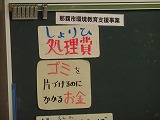 那覇市環境教育支援事業
しょりひ
処理費
ゴミを
片づけるのに
かかるお金